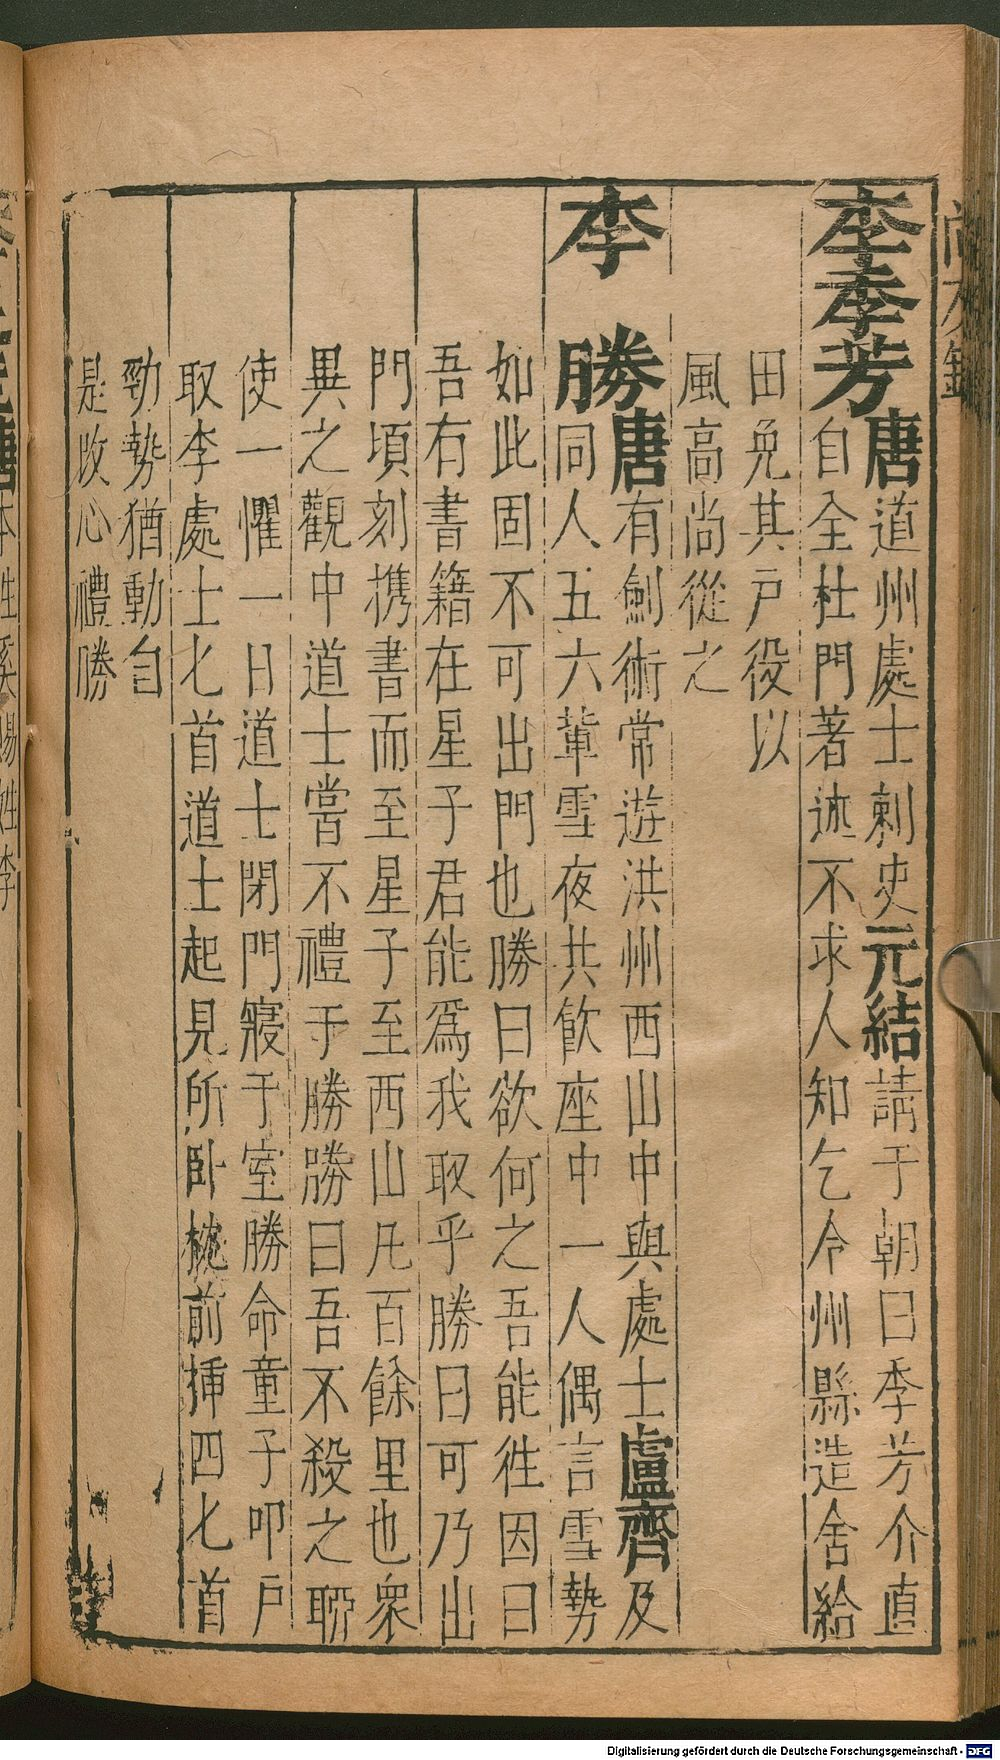 李季芳唐道州處士刺史元結請于朝曰季芳介直
自全杜門著述不求人知乞令州縣造舍給
田免其戶役以
風高尚從之
李勝唐有劍術常遊洪州西山中與處士盧齊及
同人五六輩雪夜共飲座中一人偶言雪勢
如此固不可出門也勝曰欲何之吾能徃因曰
吾有書籍在星子君能爲我取乎勝曰可乃出
門頃刻携書而至星子至西山凡百餘里也衆
異之觀中道士嘗不禮于勝勝曰吾不殺之聊
使一懼一日道士閉門寢于室勝命童子叩戶
取李處士匕首道士起見所卧枕前揷四匕首
勁勢猶動自
是改心禮勝
本姓奚賜姓李
Digitalisierung gefördert durch die Deutsche Forschungsgemeinschaft - DFG